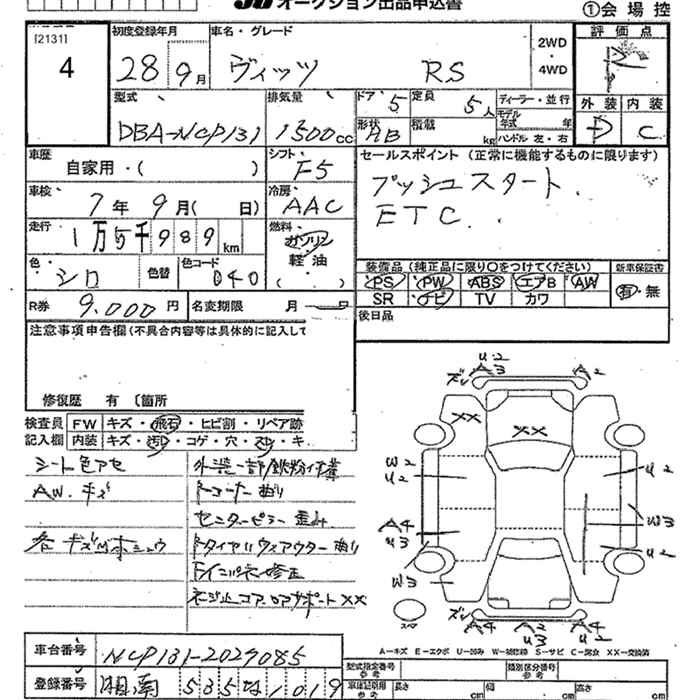 オークション出品申込書
①会場控
[2131]
4
初度登録年月
28 9月
車名・グレード
ヴィッツ RS
2WD
・
4WD
評価点
R
型式
DBA-NCP131
排気量
1500cc
ドア 5
定員 5人
ディーラー・並行
モデル年式 年
形状 HB
積載 kg
ハンドル 左・右
外装 内装
D C
車歴
自家用・( )
シフト
F5
セールスポイント (正常に機能するものに限ります)
プッシュスタート.
ETC.
車検
7年 9月( 日)
冷房
AAC
走行
1万5千989km
燃料
ガソリン
軽油
色
シロ
色替
色コード
040
装備品 (純正品に限り○をつけてください)
新車保証書
PS PW ABS エアB AW
SR ナビ TV カワ
有・無
R券 9.000円
名変期限 月 日
後日品
注意事項申告欄(不具合内容等は具体的に記入して
修復歴 有 〔箇所
検査員 FW キズ・飛石・ヒビ割・リペア跡
記入欄 内装 キズ・汚れ・コゲ・穴・スレ・キ
シート色アセ
AW.キズ
外装一部鉄粉付着
トコーナー曲り
センターピラー歪み
各キズ凹ホシュウ
トタイヤハウスアウター曲り
ドインパネ修正
ネジ止コアロアサポートXX
u2
ズレ A3 A2
XX
XX
W2
u2
u2
A4
u3
W3
u2
W3
スペア
ズレ A4 A2 A4
u3 u2
A-キズ E-エクボ U-凹み W-補修跡 S-サビ C-腐食 XX-交換済
車台番号 NCP131-2029085
登録番号 湘南 535 な 1019
型式指定番号
類別区分番号
車庫証明用 長さ cm 幅 cm 高さ cm